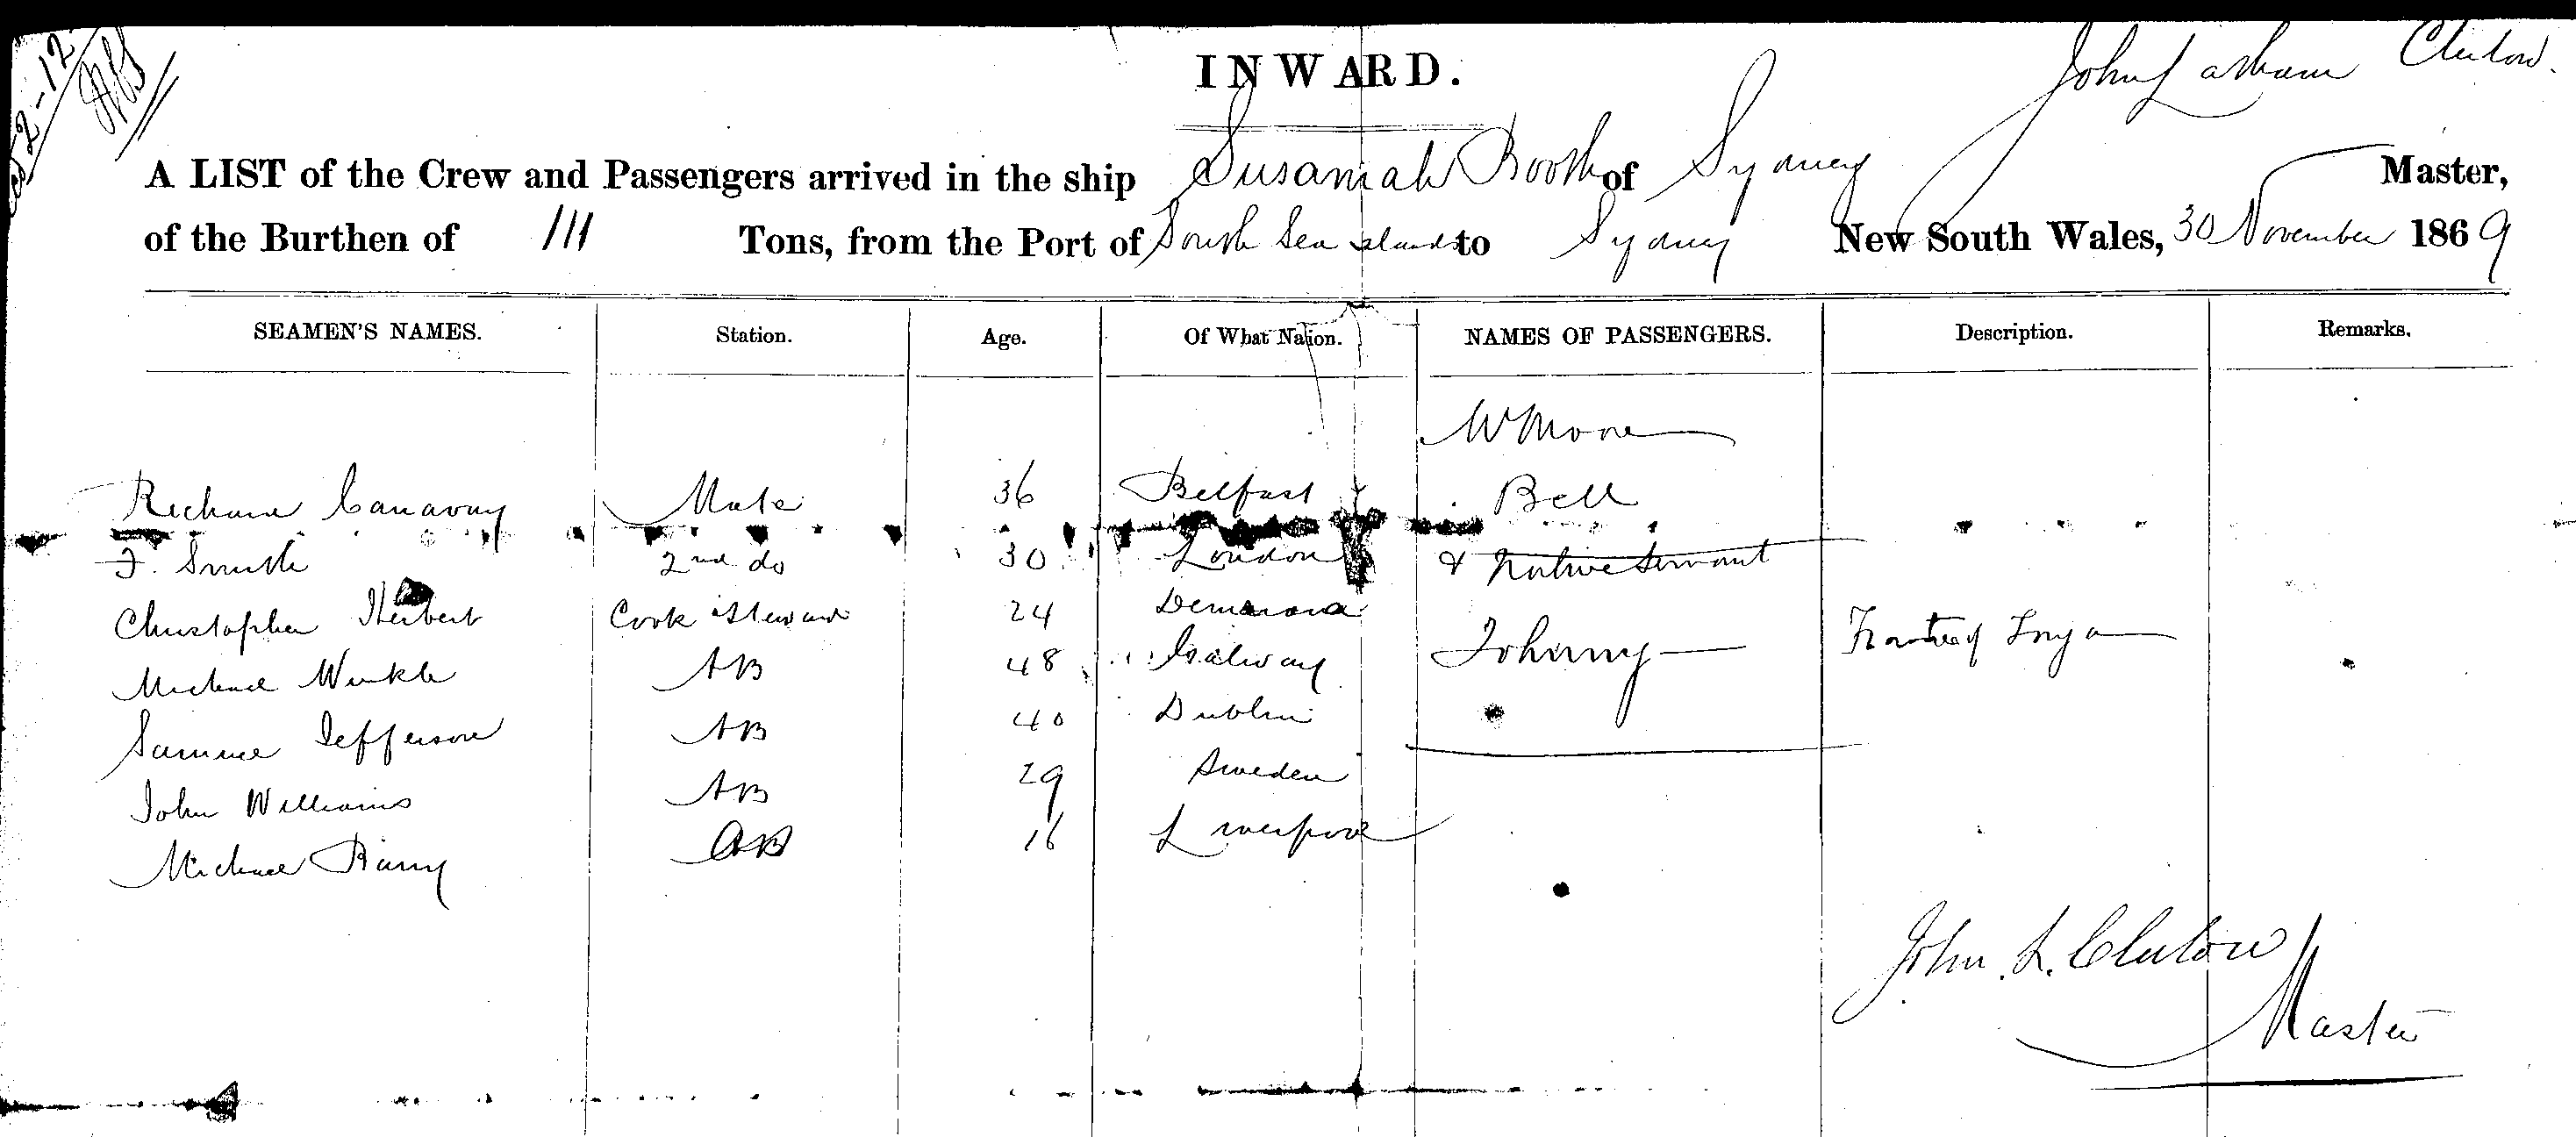 2-12
INWARD.
John Lasham Clulow.
A LIST of the Crew and Passengers arrived in the ship Susannah Booth of Sydney Master,
of the Burthen of 111 Tons, from the Port of South Sea Islands to Sydney New South Wales, 30 November 1869
SEAMEN'S NAMES. Station. Age. Of What Nation. NAMES OF PASSENGERS. Description. Remarks.
W Moore
Richard Canavay Mate 36 Belfast Bell
F. Smith 2nd do 30 London & Native Servant
Christopher Herbert Cook & Steward 24 Demerara
Michael Winkle AB 48 Galway Johnny Native of
Samuel Jefferson AB 40 Dublin
John Williams AB 29 Sweden
Michael Barry AB 16 Liverpool
John. L. Clulow
Master